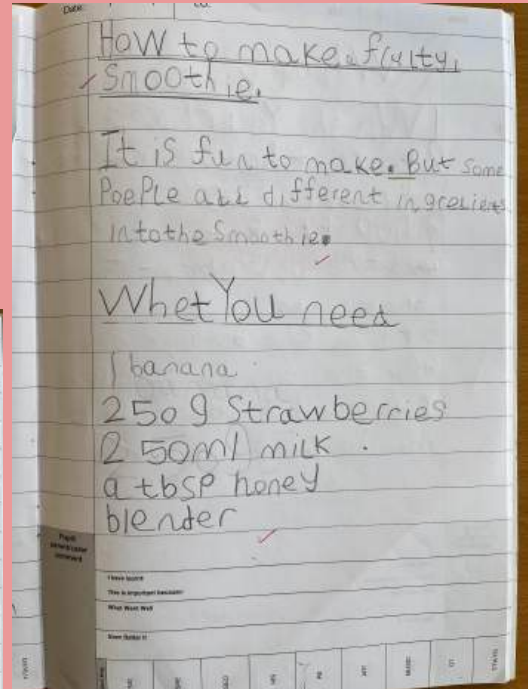 Date:
How to make a fruity
Smoothie.
It is fun to make. But some
PoePle add different ingredients
into the Smoothie.
Whet You need
1 banana
250g Strawberries
250ml milk
a tbsp honey
blender
I have learnt
This is important because:
What Went Well
Even Better If